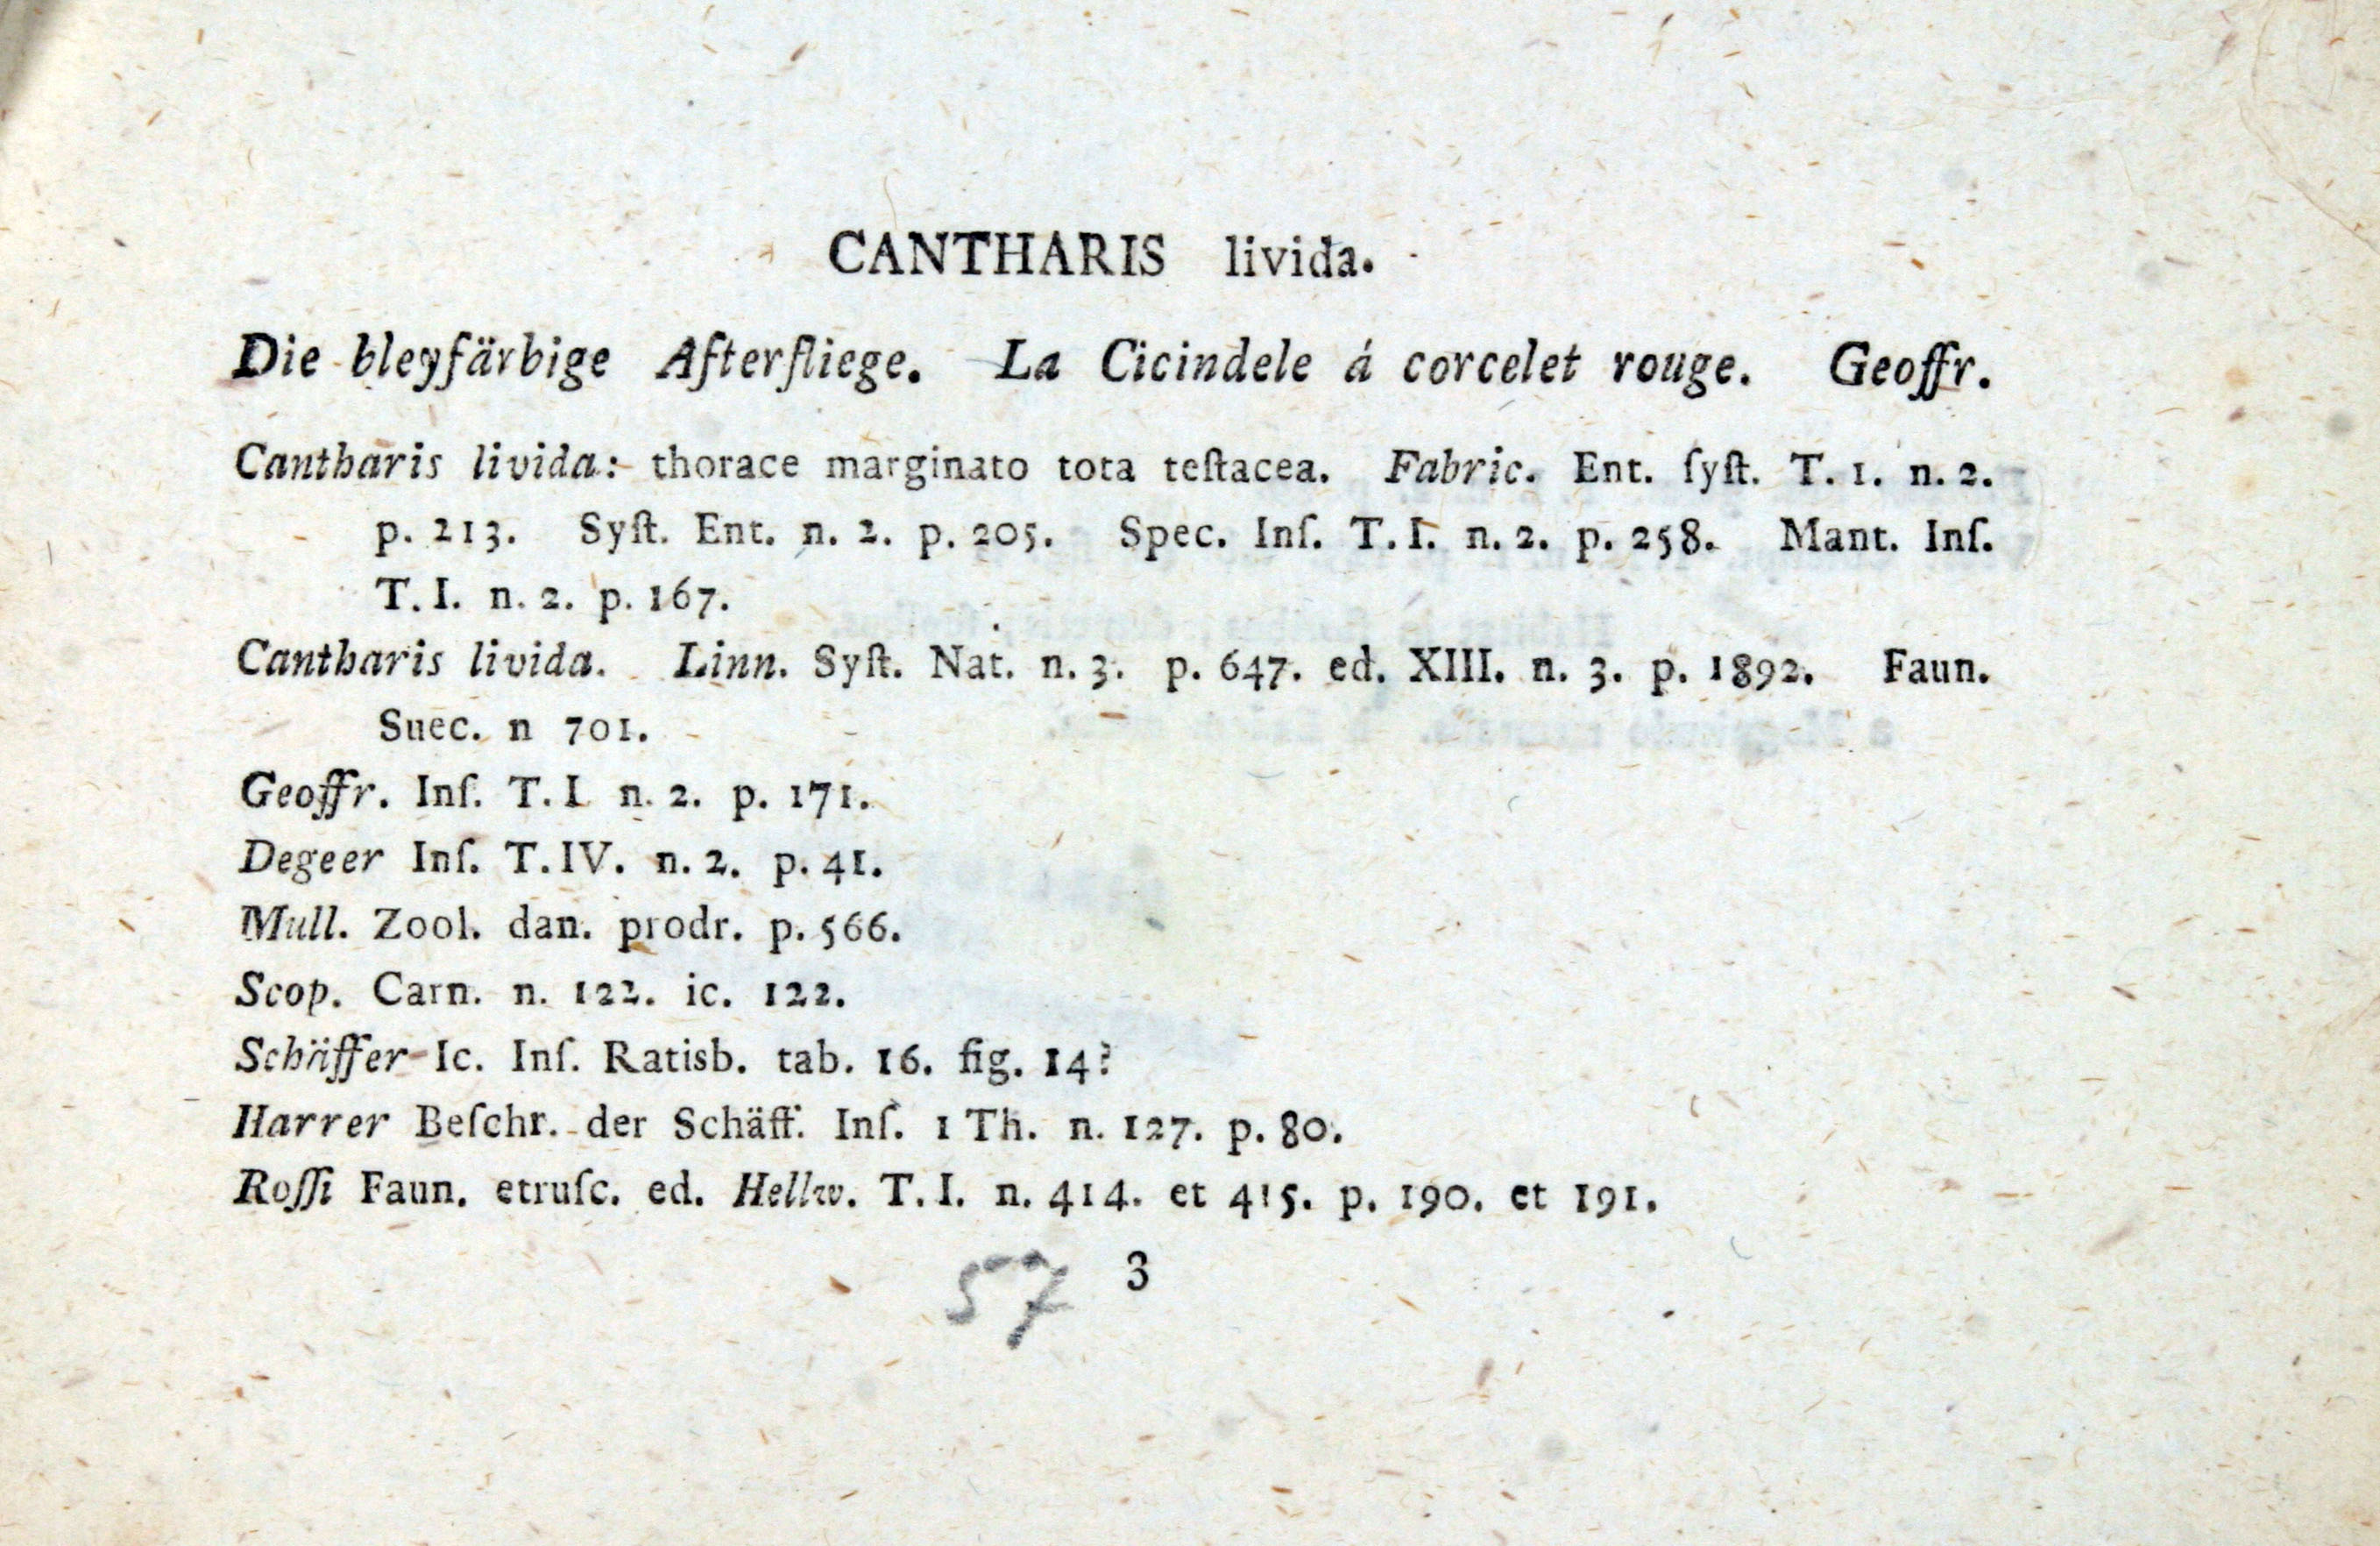 CANTHARIS livida.
Die bleyfärbige Afterfliege. La Cicindele á corcelet rouge. Geoffr.
Cantharis livida: thorace marginato tota teſtacea. Fabric. Ent. ſyſt. T. 1. n. 2.
p. 213. Syſt. Ent. n. 2. p. 205. Spec. Inſ. T. I. n. 2. p. 258. Mant. Inſ.
T. I. n. 2. p. 167.
Cantharis livida. Linn. Syſt. Nat. n. 3. p. 647. ed. XIII. n. 3. p. 1892. Faun.
Suec. n 701.
Geoffr. Inſ. T. I. n. 2. p. 171.
Degeer Inſ. T. IV. n. 2. p. 41.
Mull. Zool. dan. prodr. p. 566.
Scop. Carn. n. 122. ic. 122.
Schäffer Ic. Inſ. Ratisb. tab. 16. fig. 14?
Harrer Beſchr. der Schäff. Inſ. 1 Th. n. 127. p. 80.
Roſſi Faun. etruſc. ed. Hellw. T. I. n. 414. et 415. p. 190. et 191.
57 3